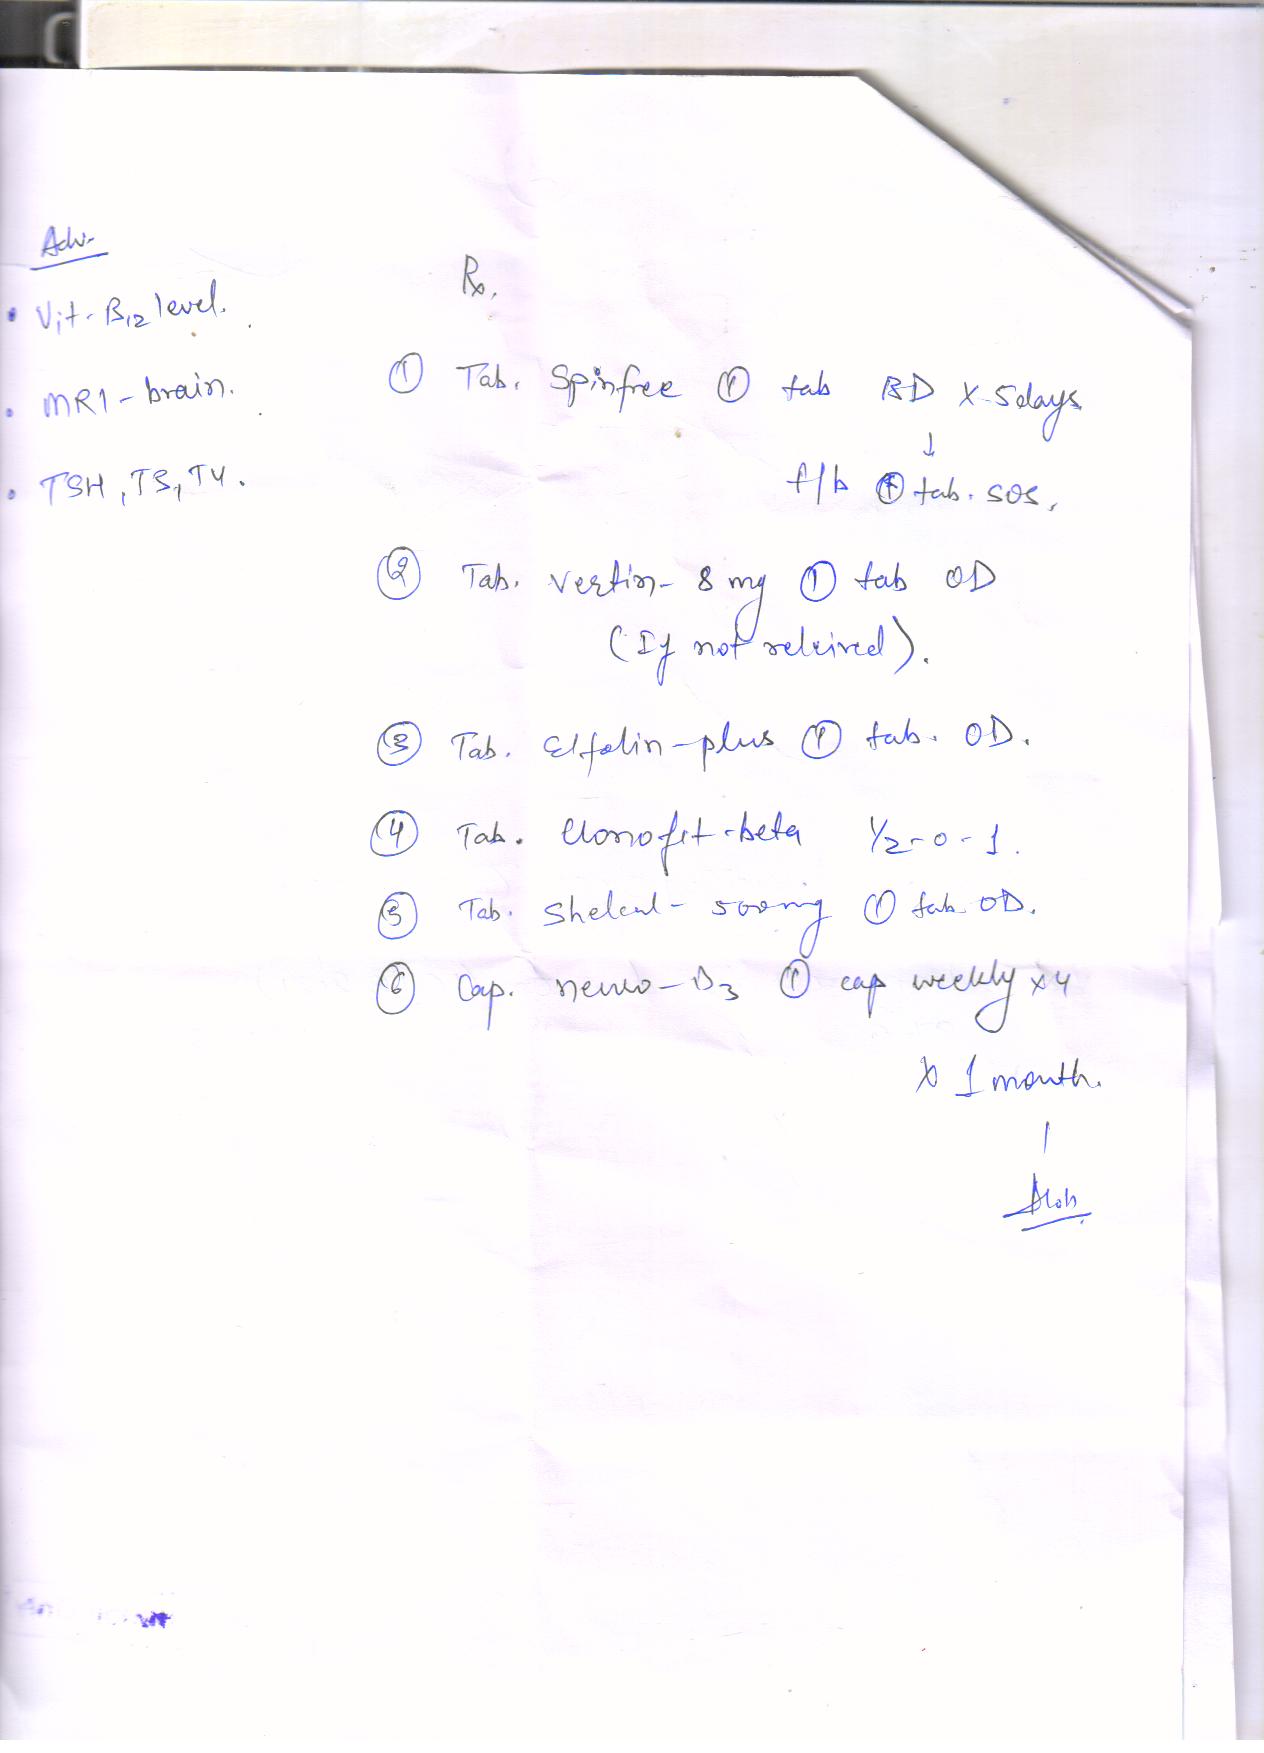 Adv.
• Vit-B12 level.
• MRI-brain.
• TSH, T3, T4.
Rx,
① Tab. Spinfree ① tab BD x 5days
↓
f/b ① tab. SOS,
② Tab. Vertin- 8 mg ① tab OD
(If not releived).
③ Tab. Elfolin-plus ① tab. OD.
④ Tab. Clonofit-beta 1/2-0-1.
⑤ Tab. Shelcal- 500mg ① tab OD.
⑥ Cap. neuro-D3 ① cap weekly x4
x 1 month.